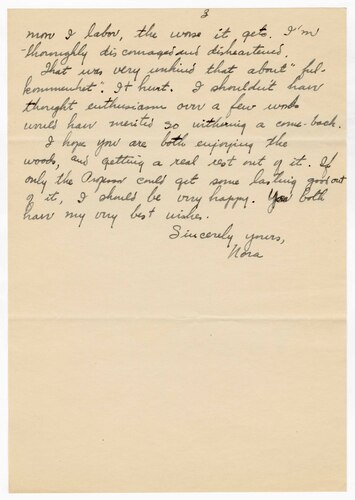 3
more I labor, the worse it gets. I'm
thoroughly discouraged and disheartened.
That was very unkind that about "ful-
kommenhet". It hurt. I shouldn't have
thought enthusiasm over a few words
would have merited so withering a come-back.
I hope you are both enjoying the
woods, and getting a real rest out of it. If
only the Professor could get some lasting good out
of it, I should be very happy. You both
have my very best wishes.
Sincerely yours,
Nora